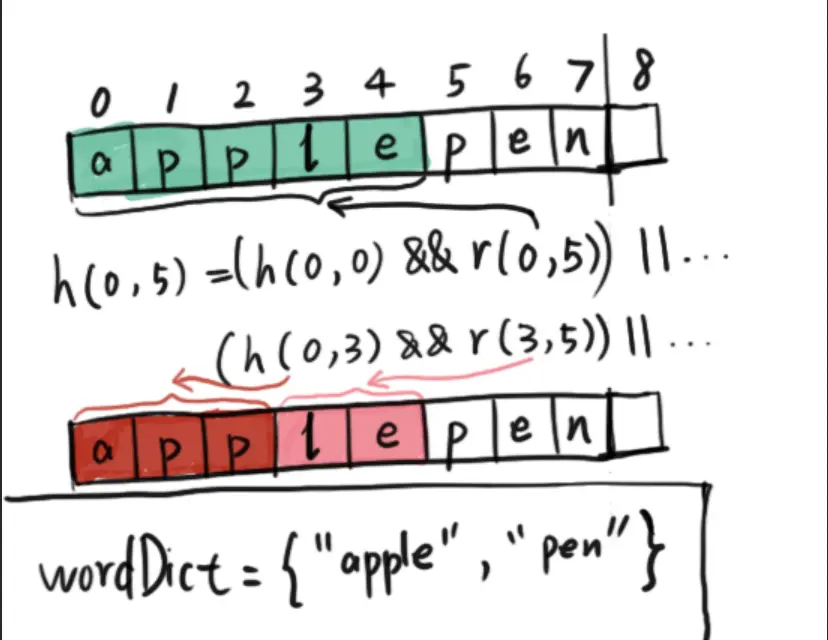 0 1 2 3 4 5 6 7 8
a p p l e p e n
h(0,5) =(h(0,0) && r(0,5)) || ...
(h(0,3) && r(3,5)) || ...
a p p l e p e n
wordDict = {"apple", "pen"}